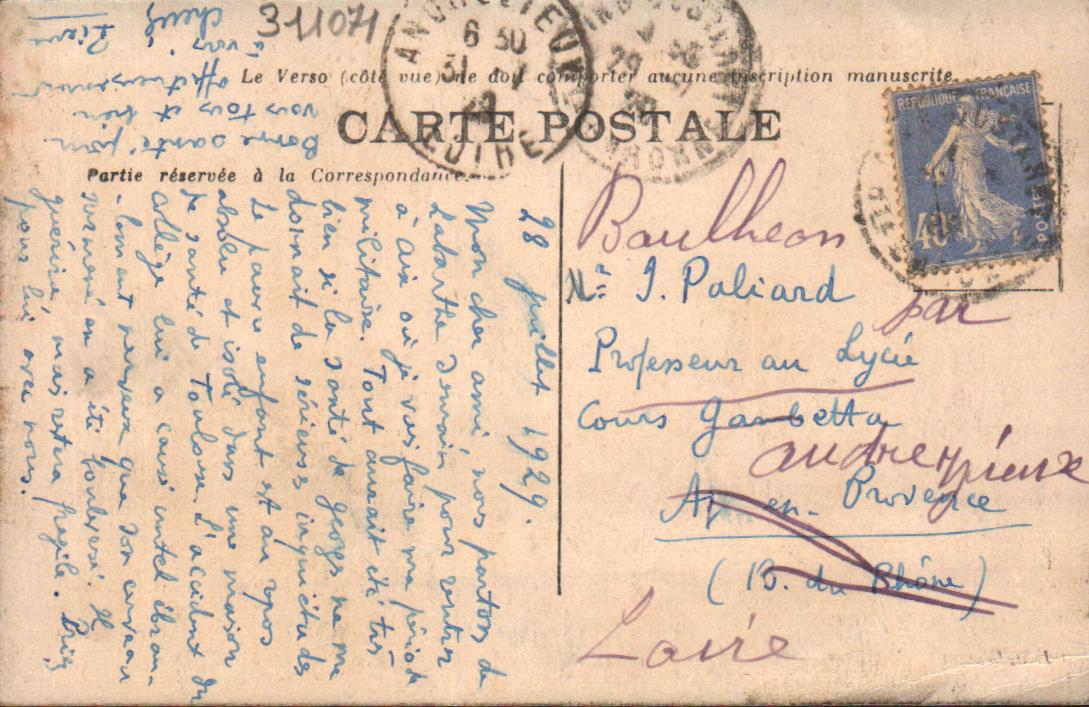 311071
Le Verso (côté vue) ne doit comporter aucune inscription manuscrite
CARTE POSTALE
Partie réservée à la Correspondance.
28 juillet 1929.
Mon cher ami, nous partons de
Labarthe demain pour rentrer
à Aix où je vais faire ma période
militaire. Tout aurait été très
bien si la santé de Georges ne me
donnait de sérieuses inquiétudes
Le pauvre enfant est au repos
absolu et isolé dans une maison
de santé de Toulouse. L'accident du
collège lui a causé un tel ébran-
-lement nerveux que son cerveau
surmené en a été bouleversé. Il
guérira, mais restera fragile. Priez
pour lui avec nous.
Bonne santé pour
vous tous et bien
affectueusement
à vous
Pierre
Baulheon
Mr J. Paliard
par
Professeur au Lycée
Cours Gambetta
andrezieux
Aix en Provence
(B. du Rhône)
Loire
REPUBLIQUE FRANÇAISE
40c
POSTES
ANDREZIEUX
6 30
31 -7
29
LOIRE